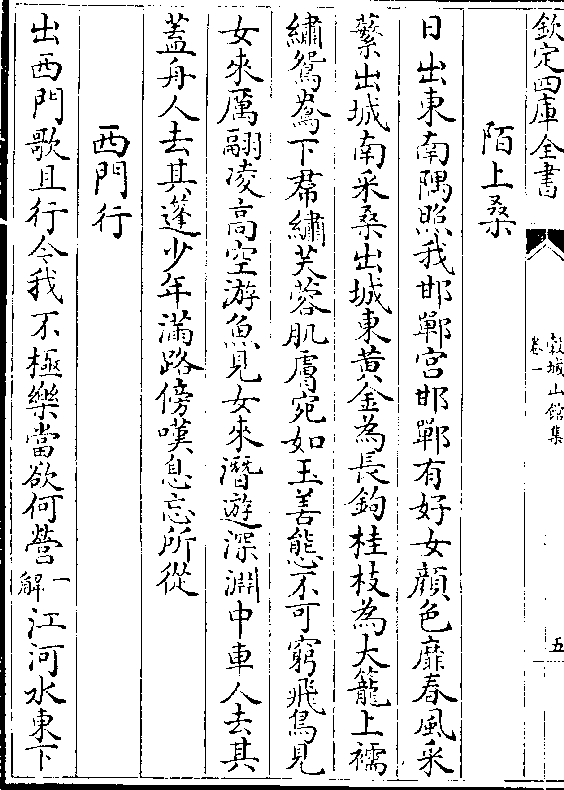 欽定四庫全書
穀城山館集
卷一
五
陌上桑
日出東南隅照我邯鄲宫邯鄲有好女顔色靡春風采
蘩出城南采桑出城東黄金為長鉤桂枝為大籠上襦
繡鴛鴦下帬繡芙蓉肌膚宛如玉善態不可窮飛鳥見
女來厲翮凌高空游魚見女來潛遊深淵中車人去其
蓋舟人去其篷少年滿路傍嘆息忘所從
西門行
出西門歌且行今我不極樂當欲何營一解江河水東下